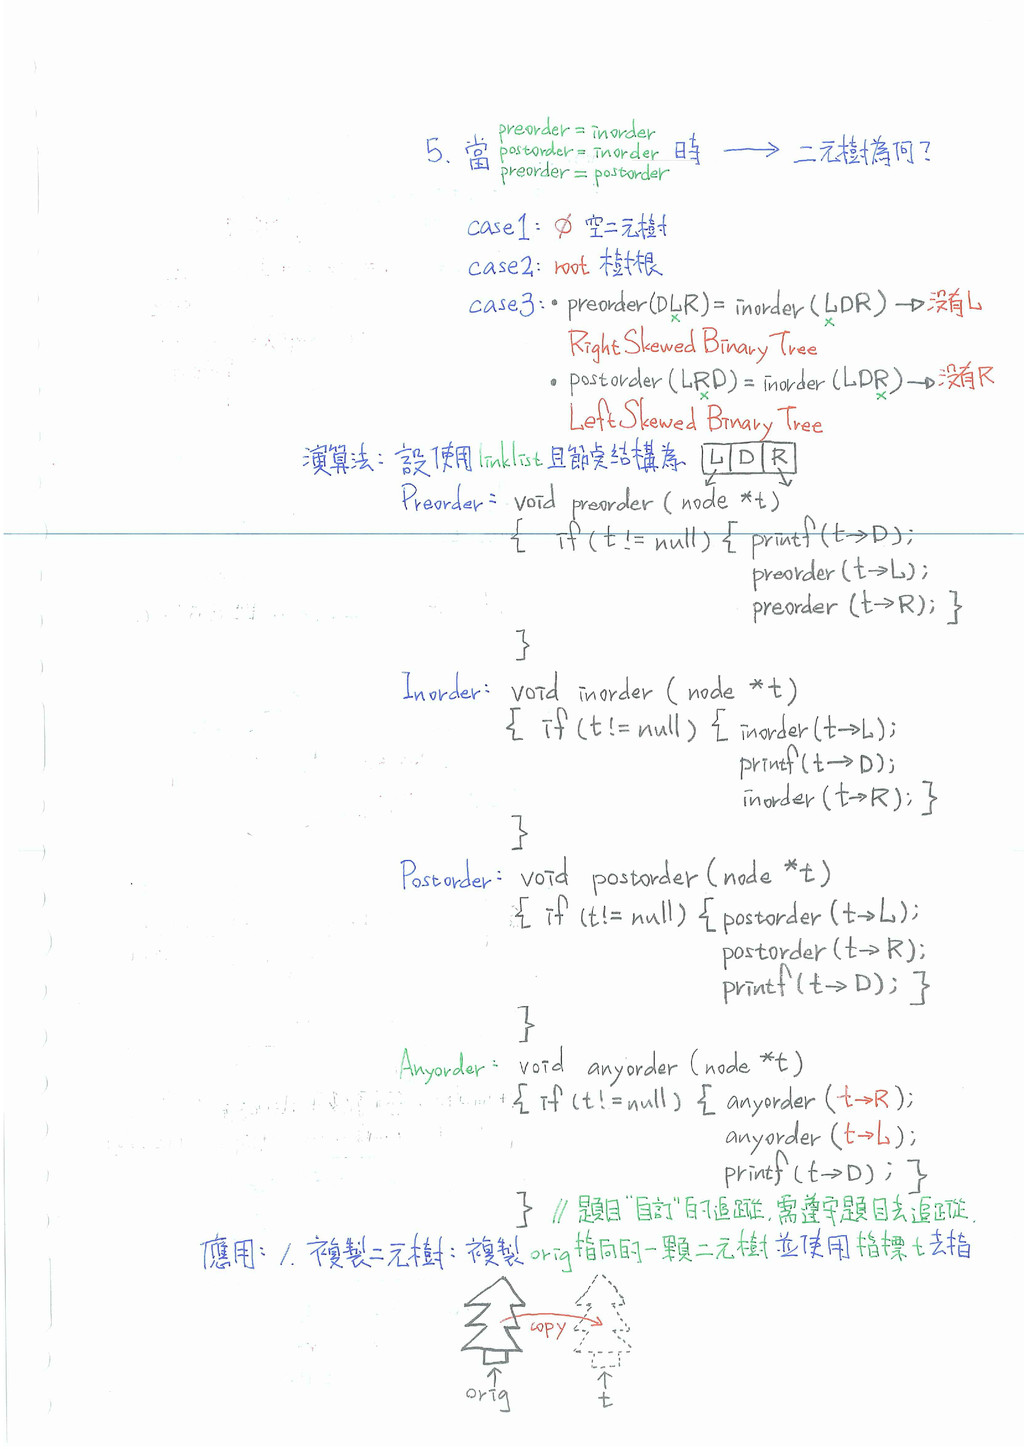 preorder = inorder
5. 當 postorder = inorder 時 → 二元樹為何?
preorder = postorder
case1: ∅ 空二元樹
case2: root 樹根
case3: • preorder(DLR) = inorder (LDR) → 沒有L
x x
Right Skewed Binary Tree
• postorder (LRD) = inorder (LDR) → 沒有R
x x
Left Skewed Binary Tree
演算法: 設使用linklist且節點結構為 L D R
Preorder: void preorder ( node *t)
{ if (t != null) { printf(t→D);
preorder (t→L);
preorder (t→R); }
}
Inorder: void inorder ( node *t)
{ if (t != null) { inorder(t→L);
printf(t→D);
inorder (t→R); }
}
Postorder: void postorder (node *t)
{ if (t != null) { postorder (t→L);
postorder (t→R);
printf(t→D); }
}
Anyorder: void anyorder (node *t)
{ if (t != null) { anyorder (t→R);
anyorder (t→L);
printf(t→D); }
} // 題目"自訂"的追蹤,需遵守題目去追蹤.
應用: 1. 複製二元樹: 複製orig指向的一顆二元樹並使用指標t去指
copy
orig t